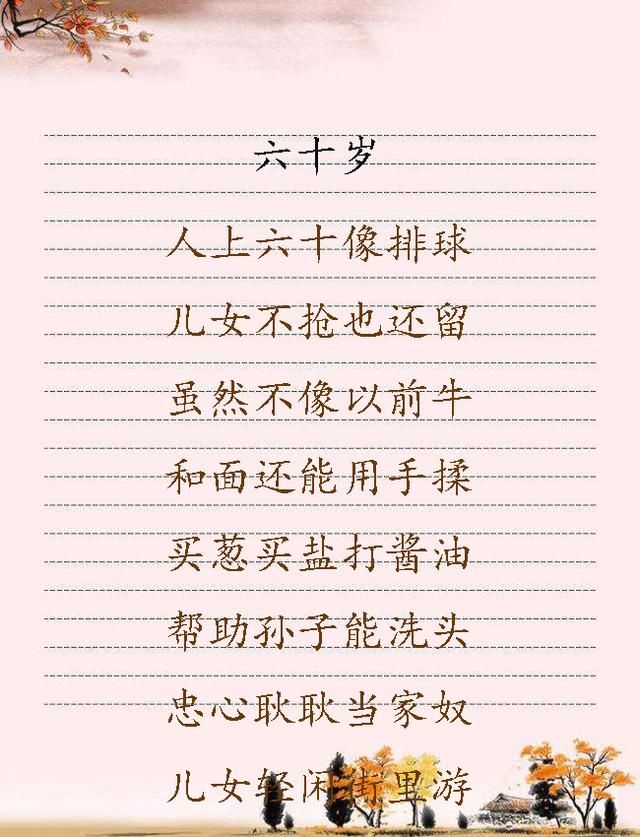 六十岁
人上六十像排球
儿女不抢也还留
虽然不像以前牛
和面还能用手揉
买葱买盐打酱油
帮助孙子能洗头
忠心耿耿当家奴
儿女轻闲街里游